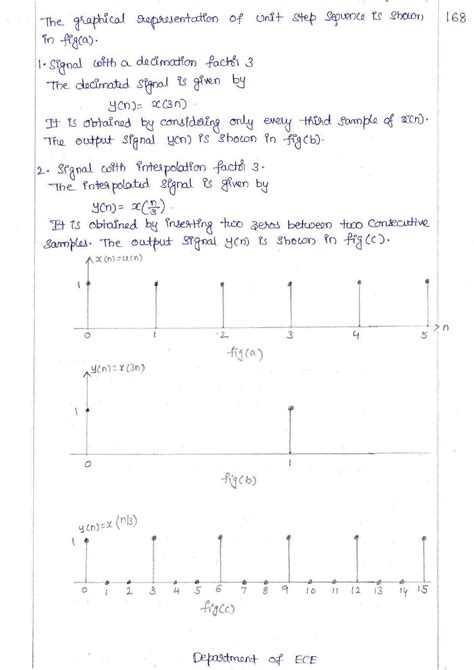 The graphical representation of unit step sequence is shown
168
in fig(a).
1. Signal with a decimation factor 3
The decimated signal is given by
y(n) = x(3n)
It is obtained by considering only every third sample of x(n).
The output signal y(n) is shown in fig(b).
2. Signal with interpolation factor 3.
The interpolated signal is given by
y(n) = x(n/3).
It is obtained by inserting two zeros between two consecutive
samples. The output signal y(n) is shown in fig(c).
x(n)=u(n)
1
0 1 2 3 4 5 n
fig(a)
y(n)=x(3n)
1
0 1
fig(b)
y(n)=x(n/3)
1
0 1 2 3 4 5 6 7 8 9 10 11 12 13 14 15
fig(c)
Department of ECE